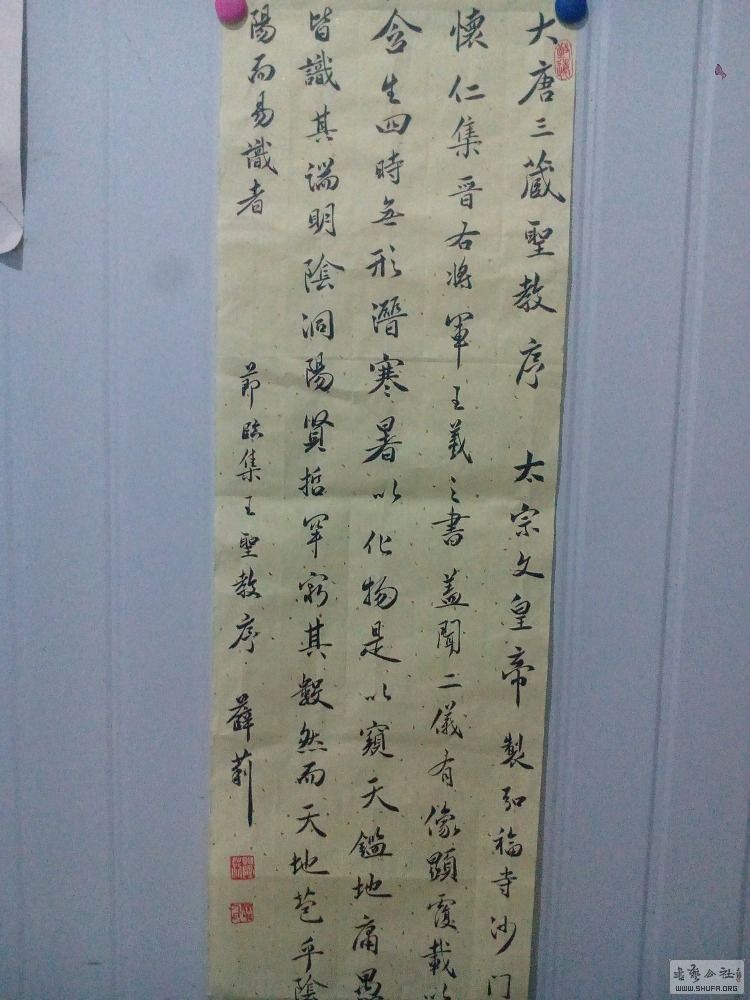 大唐三藏聖教序 太宗文皇帝製弘福寺沙门
懷仁集晋右將軍王羲之書蓋聞二儀有像顯覆載以
含生四時無形潛寒暑以化物是以窺天鑑地庸愚
皆識其端明陰洞陽賢哲罕窮其數然而天地苞乎陰
陽而易識者
節臨集王聖教序 薛莉
书艺公社
WWW.SHUFA.ORG